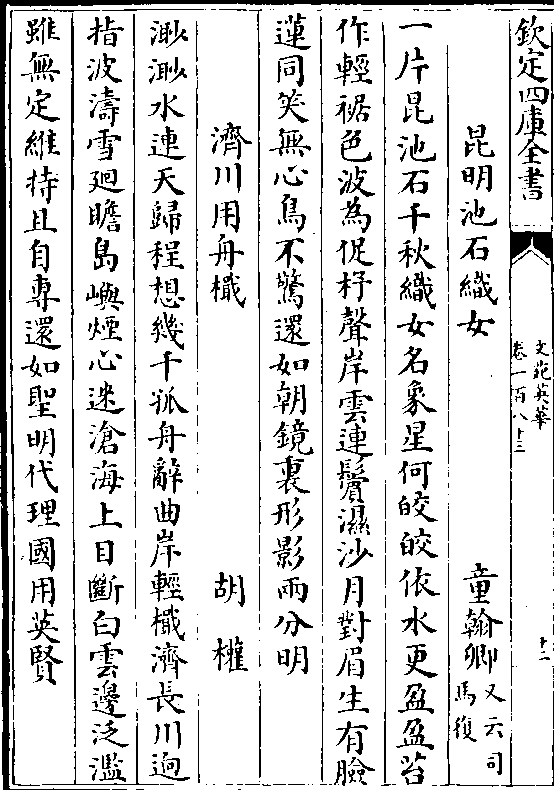 欽定四庫全書
文苑英華
卷一百八十三
十一
昆明池石織女
童翰卿又云司馬復
一片昆池石千秋織女名象星何皎皎依水更盈盈苔
作輕裾色波為促杼聲岸雲連鬢濕沙月對眉生有臉
蓮同笑無心鳥不驚還如朝鏡裏形影兩分明
濟川用舟檝
胡權
渺渺水連天歸程想幾千孤舟辭曲岸輕檝濟長川逈
指波濤雪廻瞻島嶼煙心迷滄海上目斷白雲邊泛濫
雖無定維持且自專還如聖明代理國用英賢